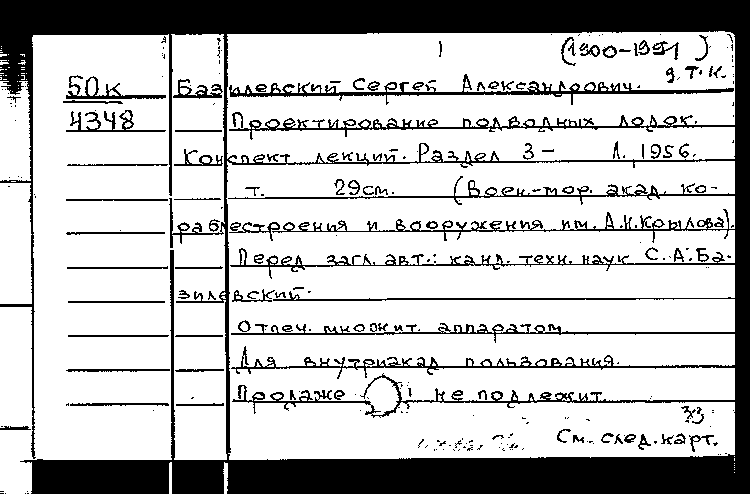 (1900-1991)
50к Базилевский, Сергей Александрович. д.т.н.
4348 Проектирование подводных лодок.
Конспект лекций. Раздел 3- Л., 1956.
т. 29см. (Воен.-мор. акад. ко-
раблестроения и вооружения им. А.Н.Крылова).
Перед загл. авт.: канд. техн. наук С.А.Ба-
зилевский.
Отпеч. множит. аппаратом.
Для внутриакад пользования.
Продаже не подлежит.
См. след. карт.